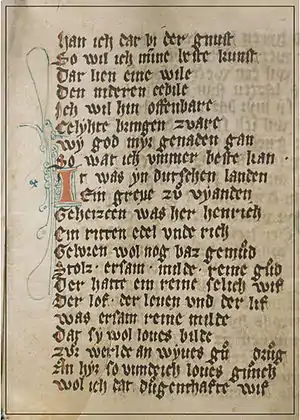 Han ich dar bi der gunst
So wil ich mine beste kunst
Dar lien eine wile
Den nideren
Ich wil hin offenbare
zware
Wy god myr genaden gan
So war ich ummer beste kan
Ir was yn dutschen landen
Ein greve zů vyanden
Geheizen was her henrich
Ein ritter edel unde rich
Geboren wol nog baz gemůd
Stolz · ersam · milde · reine gůd
Der hatte ein reine selich wif
Der lof · der leven und der lif
Was ersam reine milde
Dar sy wol loves bilde
Zůr werlde an wyves
An hyr so vunde ich loves
Wol ich dat dugenthafte wif